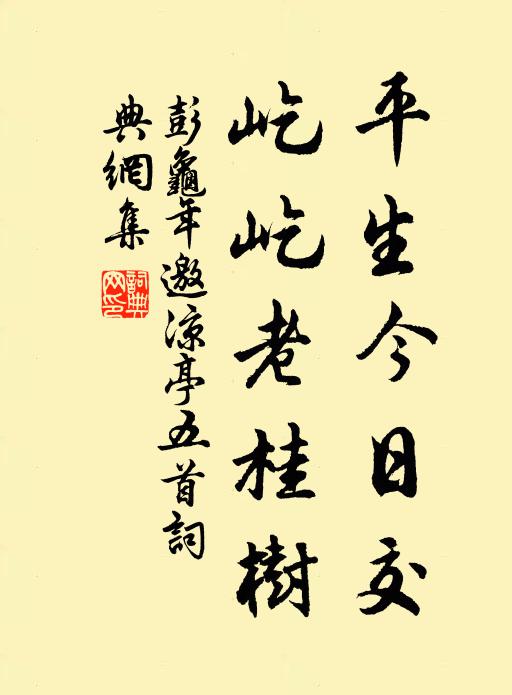 平生今日交
屹屹老桂樹
彭龜年邀涼亭五首詞
典網集
詞典網印